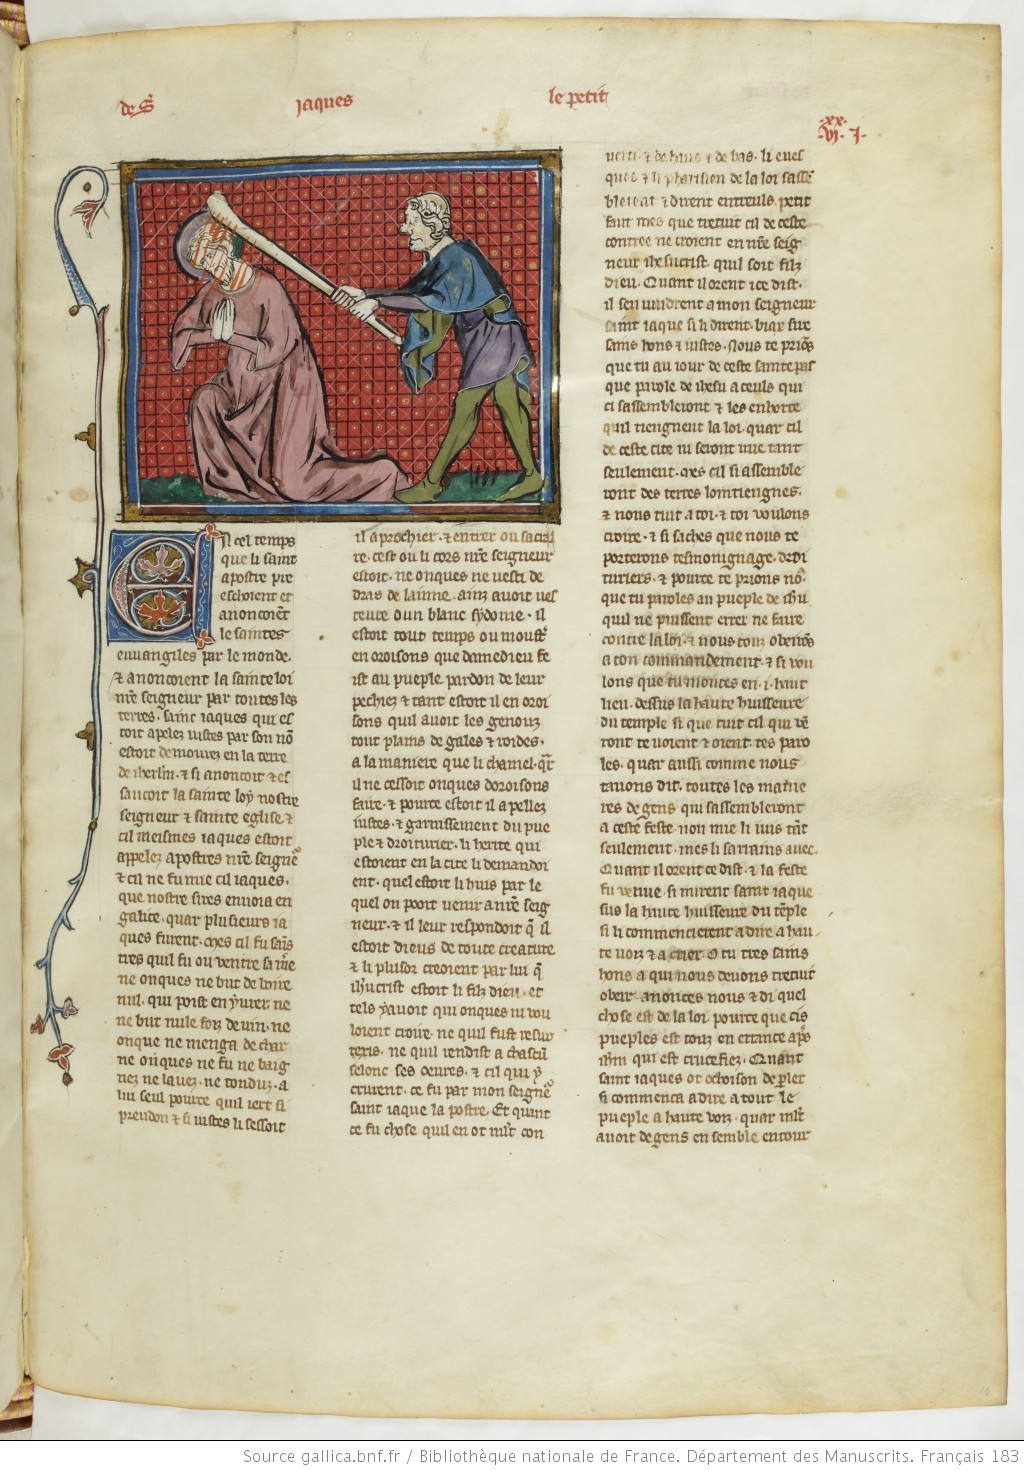 de S̄ jaques le petit
.xx.
.vj. J.
En cel temps
que li saint
apostre pre
eschoient et
anoncoiēt
le saintes
euuangiles par le monde.
⁊ anoncoient la sainte loi
nrē seigneur par toutes les
terres. saint iaques qui es
toit apelez iustes par son nō
estoit demourez en la terre
de iherlm̄. ⁊ si anoncoit ⁊ es
saucoit la sainte loy nostre
seigneur ⁊ sainte eglise. ⁊
cil meismes iaques estoit
appelez apostres nrē seignē
⁊ cil ne fu mie cil iaques.
que nostre sires enuoia en
galice. quar plusieurs ia
ques furent. Mes cil fu sāis
tres quil fu ou ventre sa me̅
ne onques ne but de boire
nul. qui poist enyurer. ne
ne but nule forz de uin. ne
onque ne menga de char
ne onques ne fu ne baig
nez ne lauez. ne tonduz. a
lui seul pource quil iert si
preudon ⁊ si iustes li lessoit
il aprochier. ⁊ entrer ou sacrai
re. cest ou li cors nrē seigneur
estoit. ne onques ne uesti de
dras de lainne. ainz auoit ues
teure dun blanc sydoine. il
estoit tout temps ou moustr̄
en oroisons que damedieu fe
ist au pueple pardon de leur
pechiez ⁊ tant estoit il en oroi
sons quil auoit les genouz
touz plains de gales ⁊ roides.
a la maniere que li chamel. qr̄
il ne cessoit onques doroisons
faire. ⁊ pource estoit il apellez
iustes. ⁊ garnissement du pue
ple ⁊ droiturier. li herite qui
estoient en la cite li demandoi
ent. quel estoit li huis par le
quel on pooit uenir a nrē seig
neur. ⁊ il leur respondoit q̄ il
estoit dieus de toute creature
⁊ li plusor creoient par lui q̄
ihūcrist estoit li filz dieu. et
tels yauoit qui onques ni vou
loient croire. ne quil fust resur
rexis. ne quil rendist a chascū
selonc ses oeures. ⁊ cil qui y
crurent. ce fu par mon seignē
saint iaque la postre. Et quant
ce fu chose quil en ot mlt̄ con
uerti. ⁊ de haus ⁊ de bas. li eues
ques ⁊ li pharision de la loi sassē
bleient ⁊ dirent entreuls. petit
faut mes que trestuit cil de ceste
contree ne croient en nrē seig
neur ihesucrist. quil soit filz
dieu. Quant il orent ice dist.
il sen uindrent a mon seigneur
saint iaque si li dirent. biar sire
sains hons ⁊ iustes. Nous te priōs
que tu au iour de ceste sainte pas
que parole de ihesu a ceuls qui
ci sassembleront ⁊ les enhorte
quil tiengnent la loi. quar cil
de ceste cite ni seront mie tant
seulement. Mes cil si assemble
ront des terres lointiengnes.
⁊ nous tuit a toi. ⁊ toi voulons
croire. ⁊ si saches que nous te
porterons tesmoingnage. de di
turiers. ⁊ pource te prions nō.
que tu paroles au pueple de ihū
quil ne puissent errer ne faire
contre la loi. ⁊ nous touz obeirōs
a ton commandement. ⁊ si vou
lons que tu montes en .i. haut
lieu. dessus la haute huisseure
du temple si que tuit cil qui vē
ront te uoient ⁊ oient. tes paro
les. quar aussi comme nous
tauons dit. toutes les manie
res de gens qui sassembleront
a ceste feste. non mie li iuis tāt
seulement. mes li sarrains auec.
Quant il orent ce dist. ⁊ la feste
fu uenue. si mirent saint iaque
sus la haute huisseure du tēple
si li commencierent a dire a hau
te uoiz ⁊ a crier. O tu tres sains
hons a qui nous deuons trestuit
obeir anonces nous ⁊ di quel
chose est de la loi. pource que cis
pueples est touz en errance apres
ihm̄ qui est crucefiez. Quant
saint iaques ot ochoison de ꝑler
si commenca a dire a tout le
pueple a haute voiz. quar mlt̄
auoit de gens en semble entour
Source gallica.bnf.fr / Bibliothèque nationale de France. Département des Manuscrits. Français 183